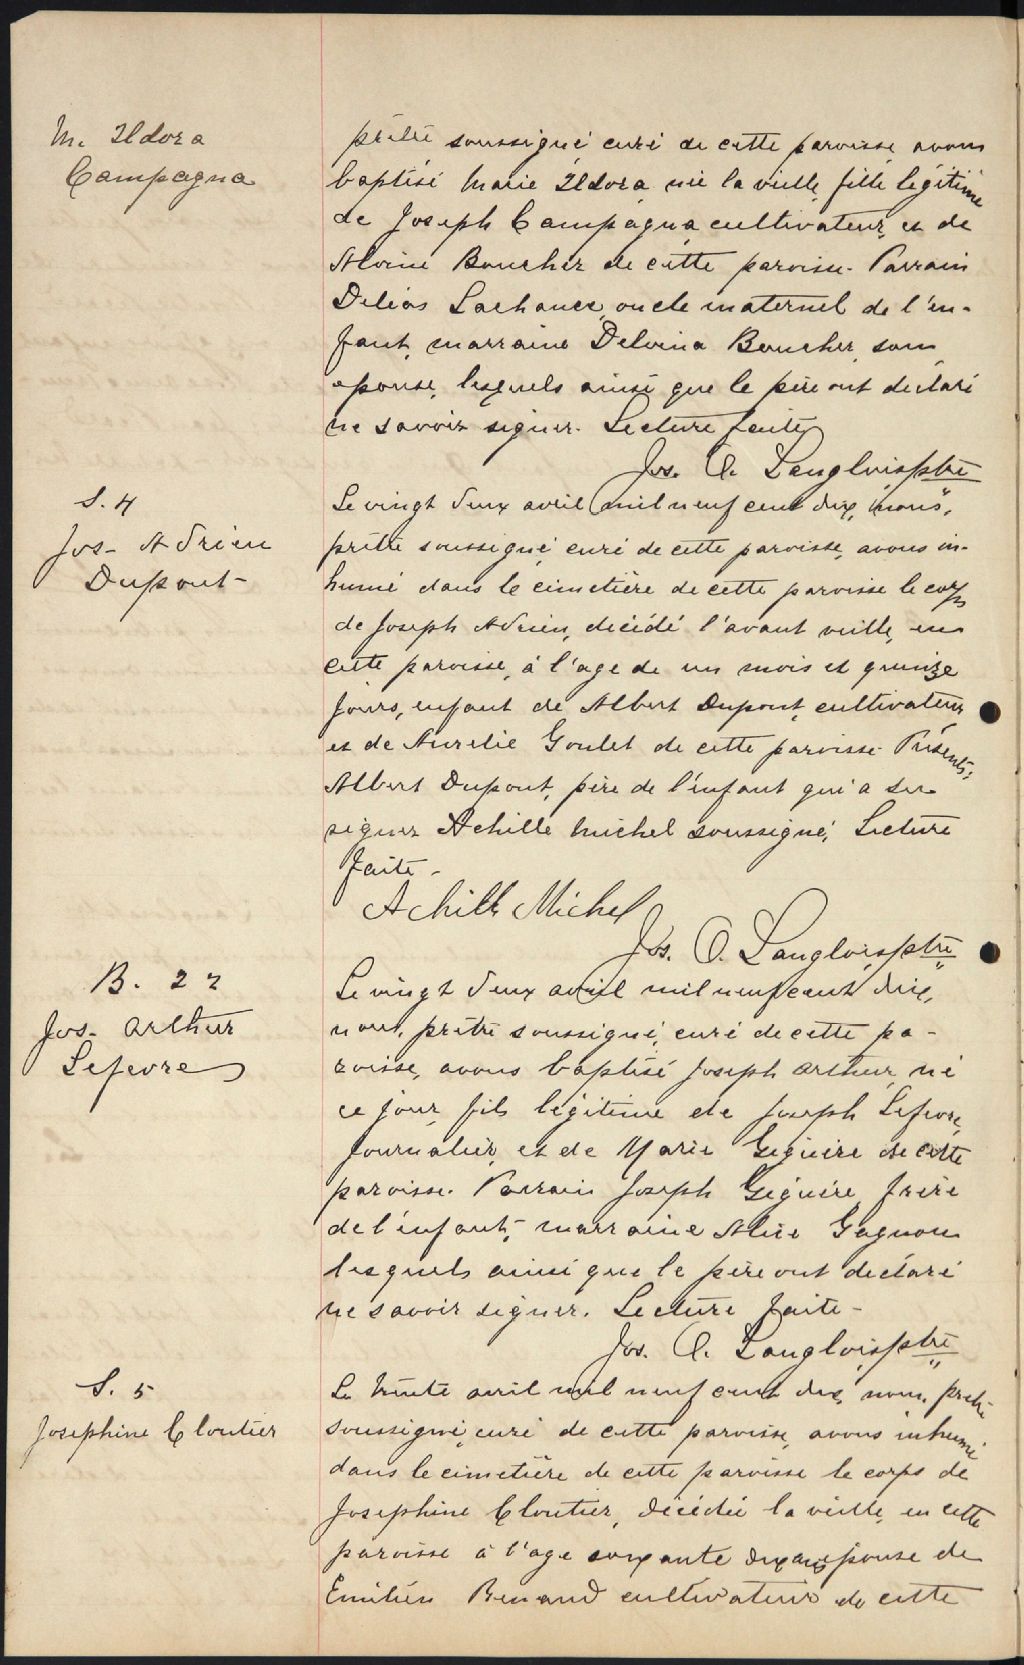 M. Ildora
Campagna
prêtre soussigné curé de cette paroisse avons
baptisé Marie Ildora née la veille, fille légitime
de Joseph Campagna cultivateur, et de
Boucher de cette paroisse. Parrain
Delias Lachance, oncle maternel de l'en-
fant, marraine Delvina Boucher, son
épouse, lesquels ainsi que le père ont déclaré
ne savoir signer. Lecture faite
Jos. O. Langlois ptre
S. 4
Jos. Adrien
Dupont
Le vingt deux avril mil neuf cent dix, nous,
prêtre soussigné, curé de cette paroisse, avons in-
humé dans le cimetière de cette paroisse le corps
de Joseph Adrien, décédé l'avant veille, en
cette paroisse, à l'age de un mois et quinze
jours, enfant de Albert Dupont, cultivateur
et de Aurelie Goulet de cette paroisse. Présents,
Albert Dupont, père de l'enfant qui a su
signer Achille Michel soussigné, Lecture
faite -
Achille Michel
Jos. O. Langlois ptre
B. 22
Jos. Arthur
Lefevre
Le vingt deux avril mil neuf cent dix,
nous, prêtre soussigné, curé de cette pa-
roisse, avons baptisé Joseph Arthur, né
ce jour, fils légitime de Joseph Lefevre,
journalier, et de Marie Giguère de cette
paroisse. Parrain Joseph Giguère, frère
de l'enfant, marraine Alice Gagnon
lesquels ainsi que le père ont declaré
ne savoir signer. Lecture faite -
Jos. O. Langlois ptre
S. 5
Josephine Cloutier
Le trente avril mil neuf cent dix, nous, prêtre
soussigné, curé de cette paroisse, avons inhumé
dans le cimetière de cette paroisse le corps de
Josephine Cloutier, décédée la veille, en cette
paroisse à l'age soixante dix ans épouse de
Emilien Renaud cultivateur de cette